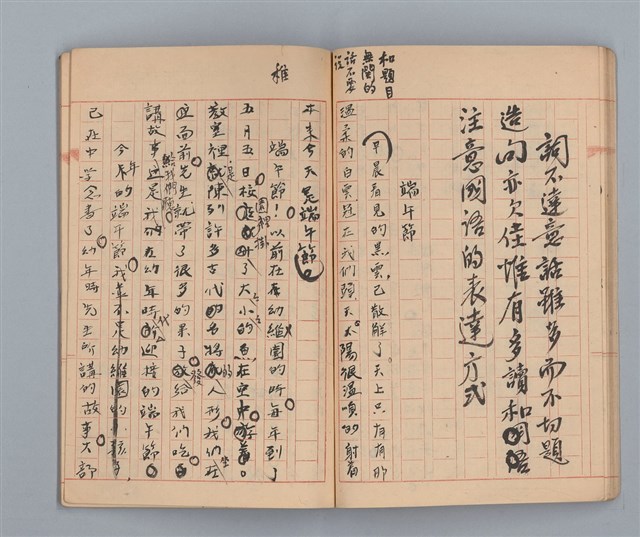 詞不達意話雖多而不切題
造句亦欠佳惟有多讀和
注意國語的表達方式
端午節
和題目
無關的
話不要
說
早晨看見的黑雲已散解了天上只有有那
溫柔的白雲冠在我們頭天太陽很溫暖的射着
本來今天是端午節
稚
端午節以前在幼維園的時每年到了
五月五日校園裡掛了大小的魚在空中游着。
教室裡陳列許多古代的名將人形我們坐在
面前先生就帶了很多的果子發給我們吃
給我們
講故事這是我們在幼年時代迎接的端午節
今年的端午節我並不是幼維園的小孩
已在中學念書了幼年時先生所講的故事大部